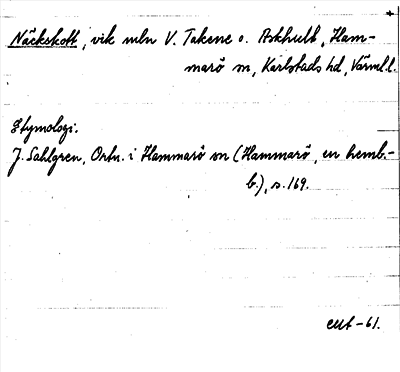 Näckskott, vik mln V. Takene o. Askhult, Ham-
marö sn, Karlstads hd, Värml.l.
Etymologi.
J. Sahlgren, Ortn. i Hammarö sn (Hammarö, en hemb.-
b.), s. 169.
-61.